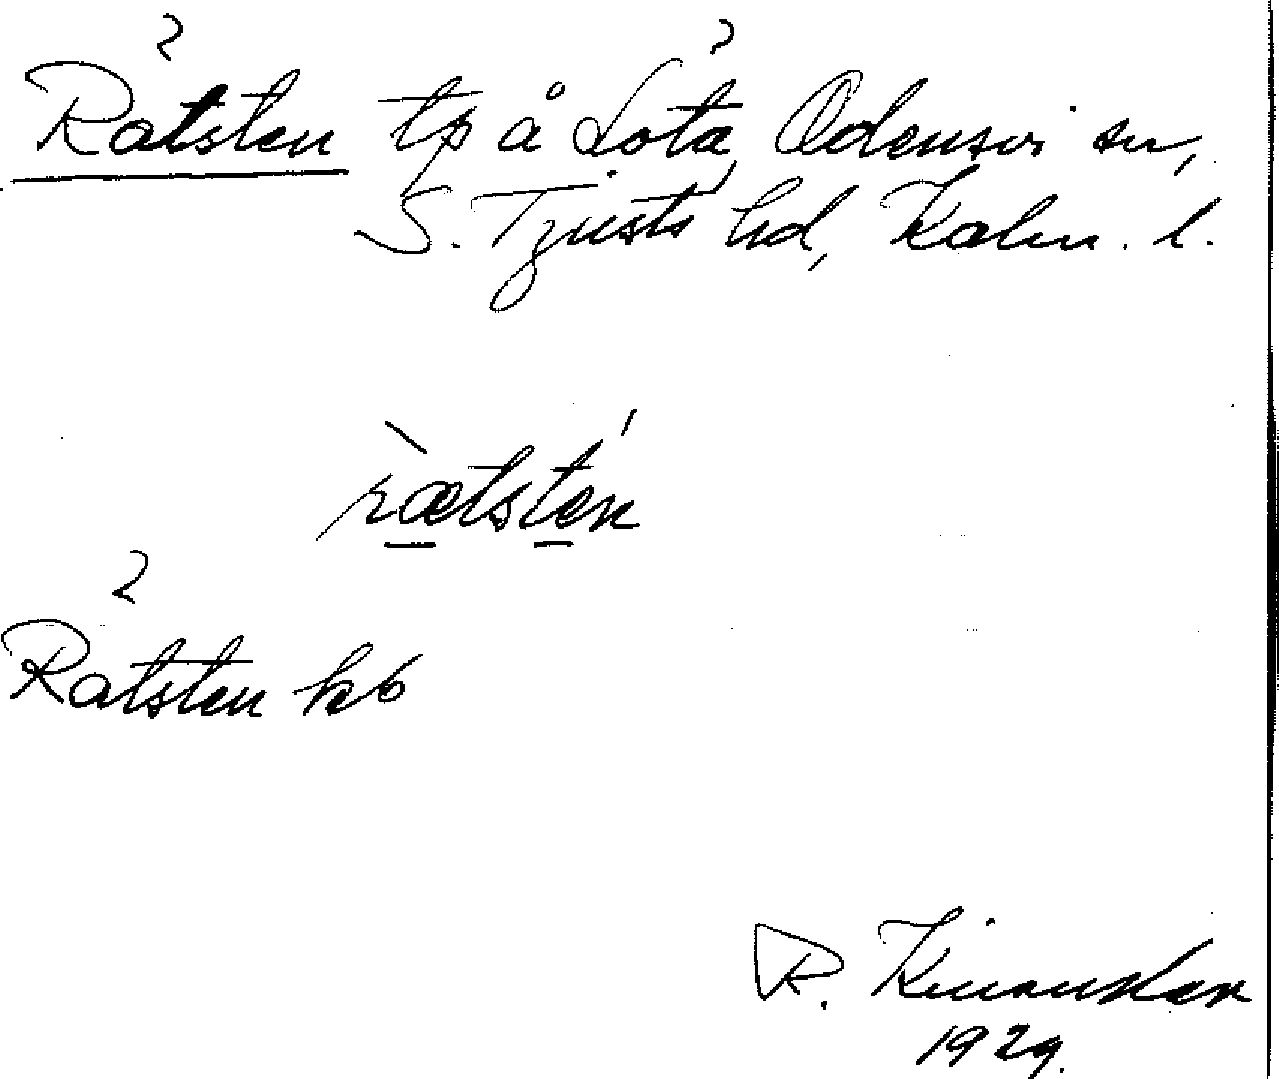 Råtsten tp å Lötå, Odensvi sn,
S. Tjusts hd, Kalm. l.
rætsten
Råtsten kb
R. Kinander
1929.